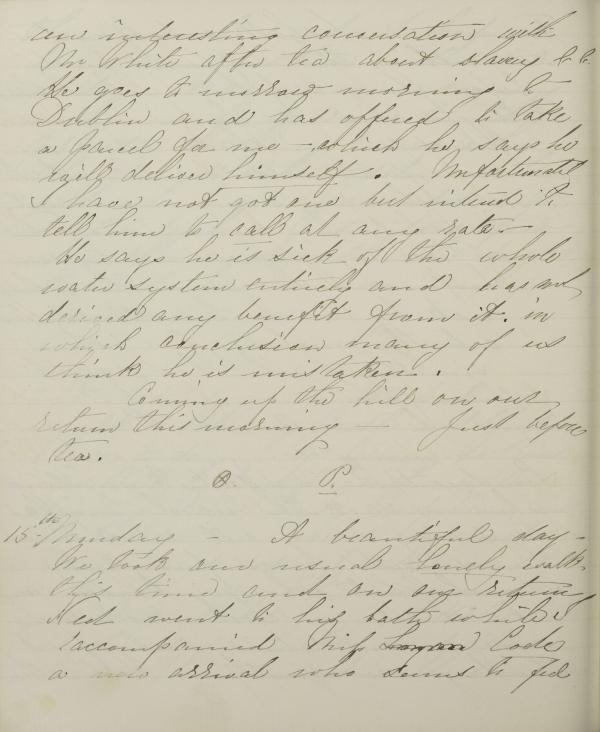 an interesting conversation with
Mr White after tea about slavery &c.
He goes to morrow morning to
Dublin and has offered to take
a parcel for me – which he says he
will deliver himself. Unfortunately
I have not got one but intend to
tell him to call at any rate –
He says he is sick of the whole
water system entirely and has not
derived any benefit from it. in
which conclusion many of us
think he is mistaken.
Coming up the hill on our
return this morning – Just before
tea.
O. P.
15th Monday – A beautiful day –
We took our usual lonely walk
this time and on our return
Ned went to his bath while I
accompanied Miss Code
a new arrival who seems to feel